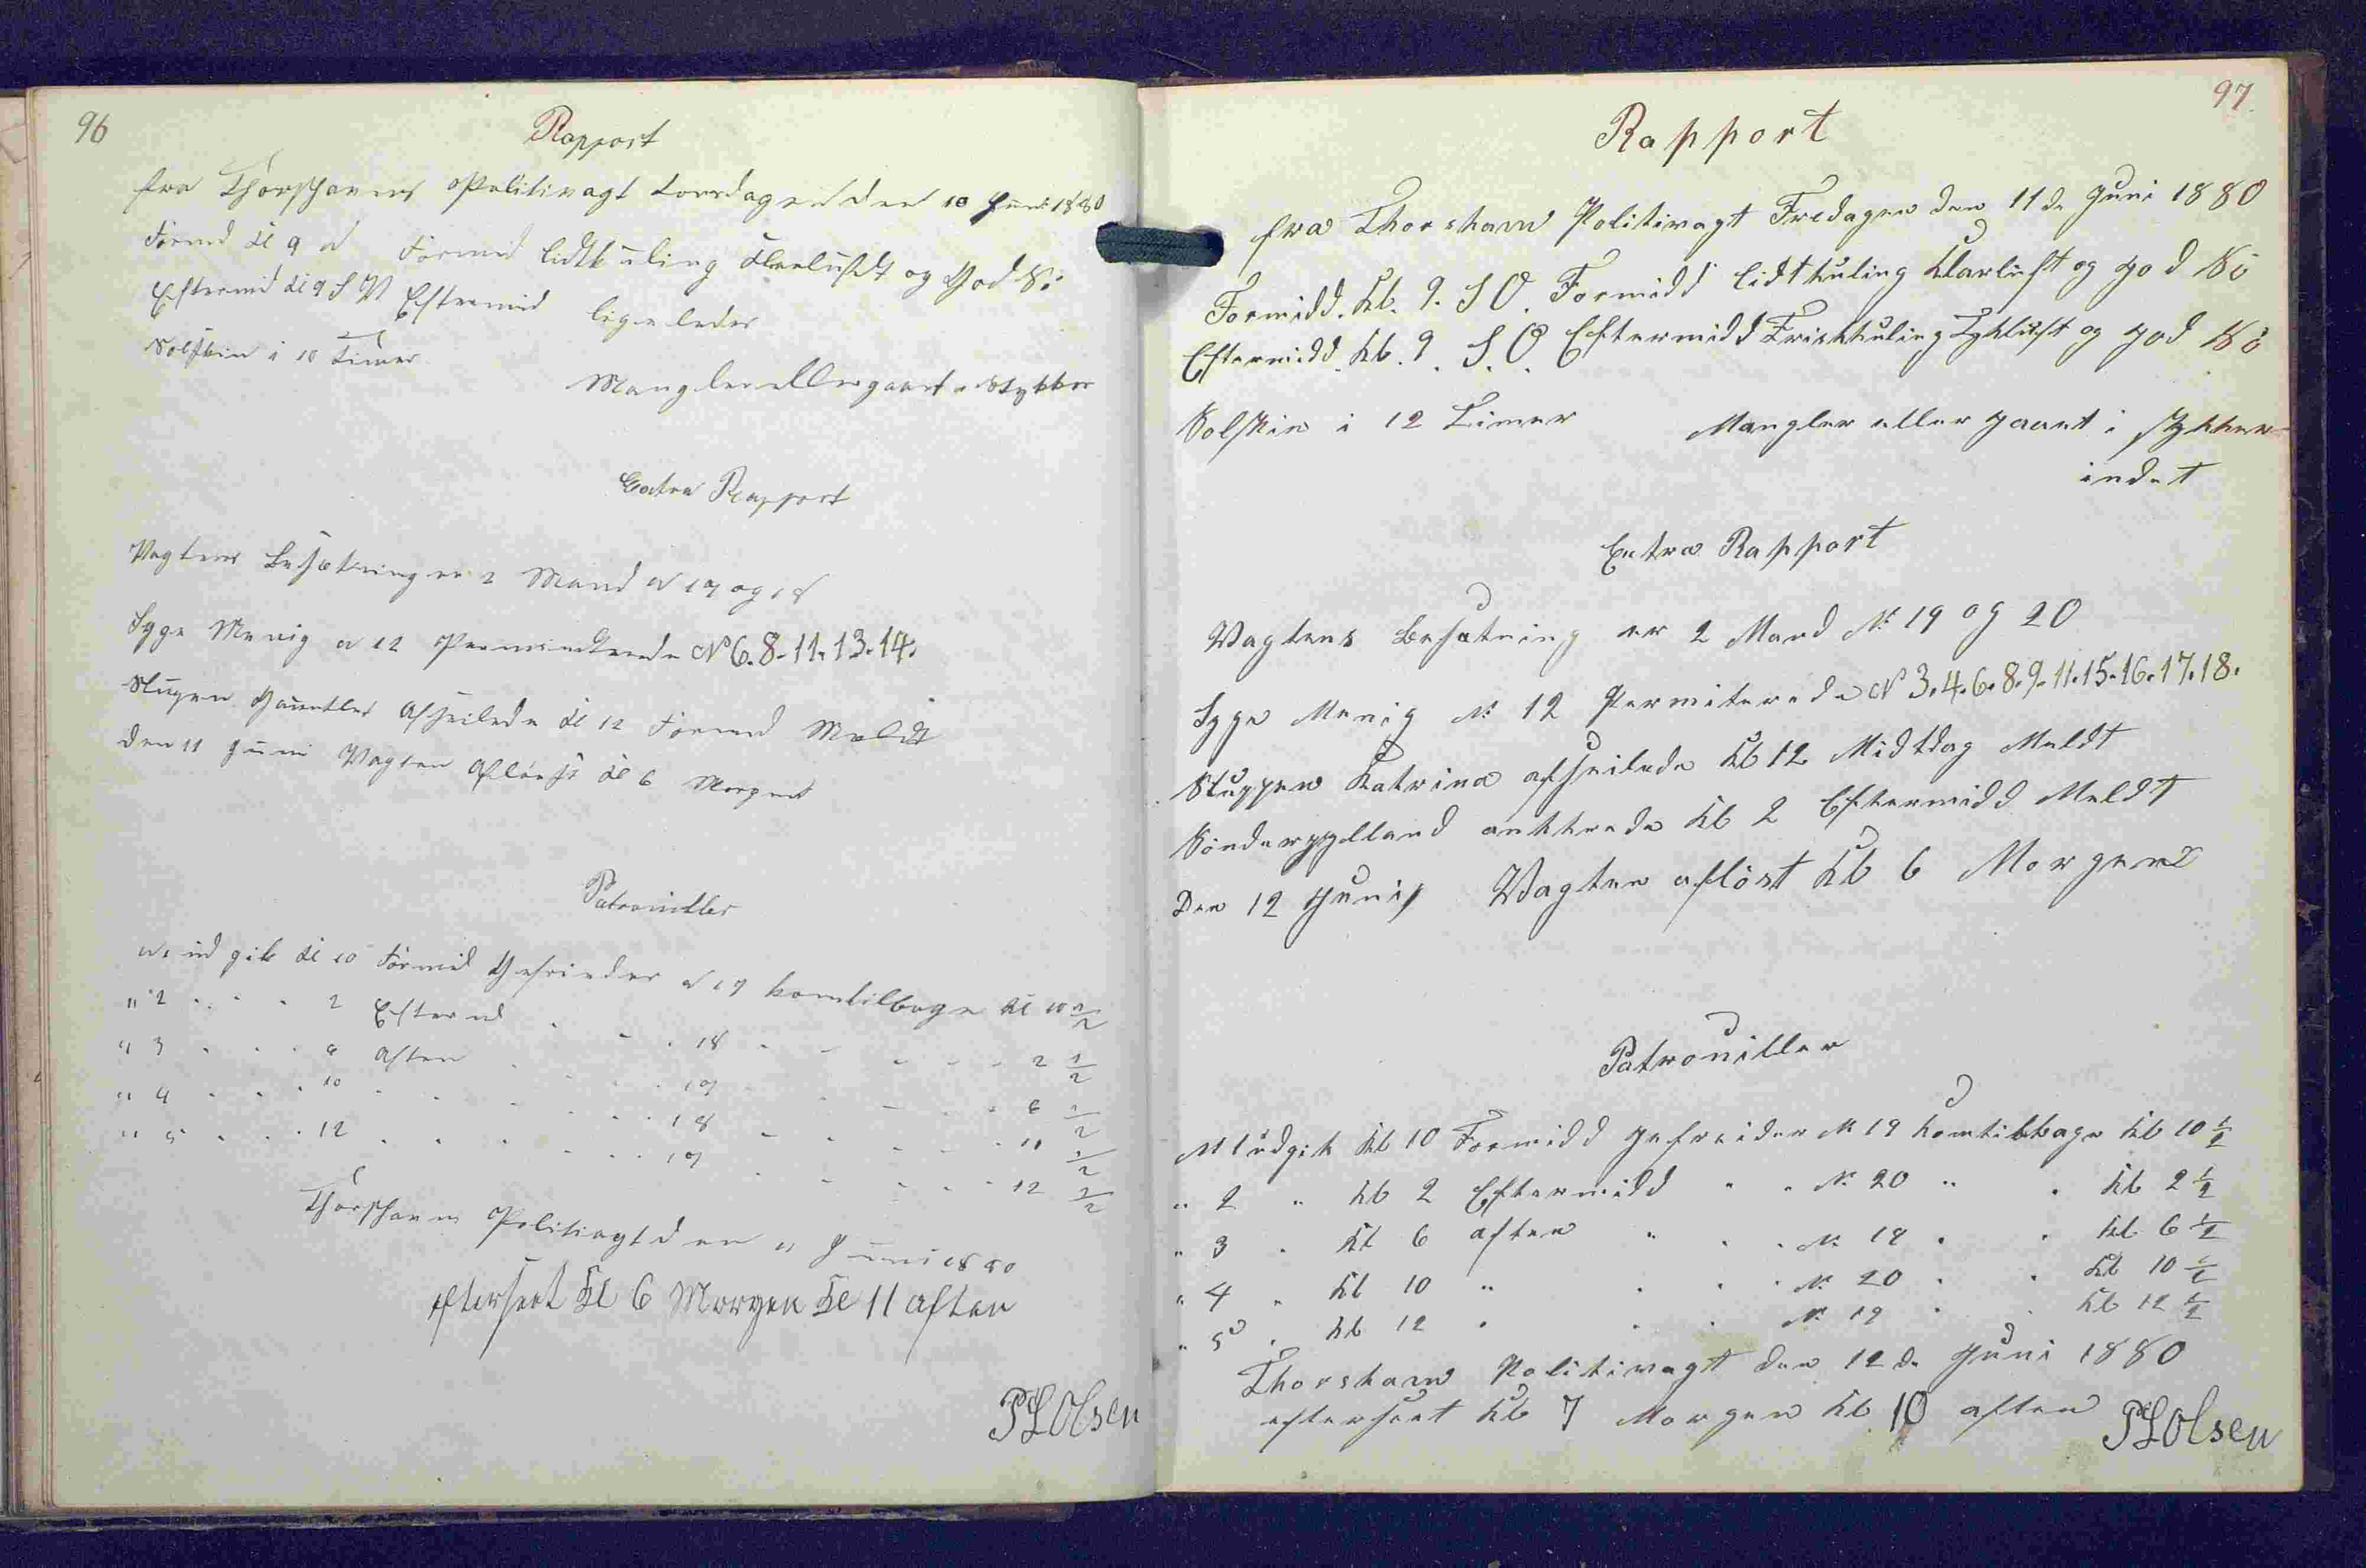 96
Rapport
fra Thorshavns Politivagt Torsdagen den 10 Juni 1880
Formd Kl 9 N Formid lidt kuling Klarluft og God Sö
Eftermid Kl 9 S V Eftermid ligeledes
Solskin i 10 Timer
Mangler eller gaaet i Stykker
Extra Rapport
Vagtens Besætning er 2 Mand N 17 og 18
Syge Menig N 12 Permiterede N 6. 8. 11. 13. 14.
Slupen afseilede Kl 12 Formd Meldt
den 11 Juni Vagten Aflöst Kl 6 Morgend
Patrouiller
N 1 udgik Kl 10 Formid Gefreider N 17 komtilbage Kl 10 1/2
" 2 " " " 2 Efterm " " " 18 " " " " 2 1/2
" 3 " " " 6 Aften " " " 17 " " " " 6 1/2
" 4 " " " 10 " " " " 18 " " " " 11 1/2
" 5 " " " 12 " " " " 17 " " " " 12 1/2
Thorshavns Politivagt den 11 Juni 1880
efterseet Kl 6 Morgen Kl 11 aften
PLOlsen
97
Rapport
fra Thorshavn Politivagt Fredagen den 11 de Juni 1880
Formidd. Kl. 9. S O. Formidd lidt kuling Klarluft og god Sö
Eftermidd. Kl. 9. S. O. Eftermidd Friskkuling Tykluft og god Sö
Solskin i 12 Timer Mangler eller gaaet i stykker
indet
Extra Rapport
Vagtens Besætning er 2 Mand N: 19 og 20
Syge Menig N: 12 Permiterede N 3. 4. 6. 8. 9. 11. 15. 16. 17. 18.
Sluppen Katrina afseilede Kl 12 Middag Meldt
Sönderjylland ankrede Kl 2 Eftermidd Meldt
Den 12 Juni Vagten aflöst Kl 6 Morgend
Patrouiller
N 1 udgik Kl 10 Formidd gefreider N 19 komtilbage Kl 10 1/2
" 2 " Kl 2 Eftermidd " " N: 20 " " Kl 2 1/2
" 3 " Kl 6 aften " " " N: 19 " " Kl 6 1/2
" 4 " Kl 10 " " " " N: 20 " " Kl 10 1/2
" 5 " Kl 12 " " " N: 19 " " Kl 12 1/2
Thorshavn Politivagt den 12 de Juni 1880
efterseet Kl 7 Morgen Kl 10 aften
PLOlsen